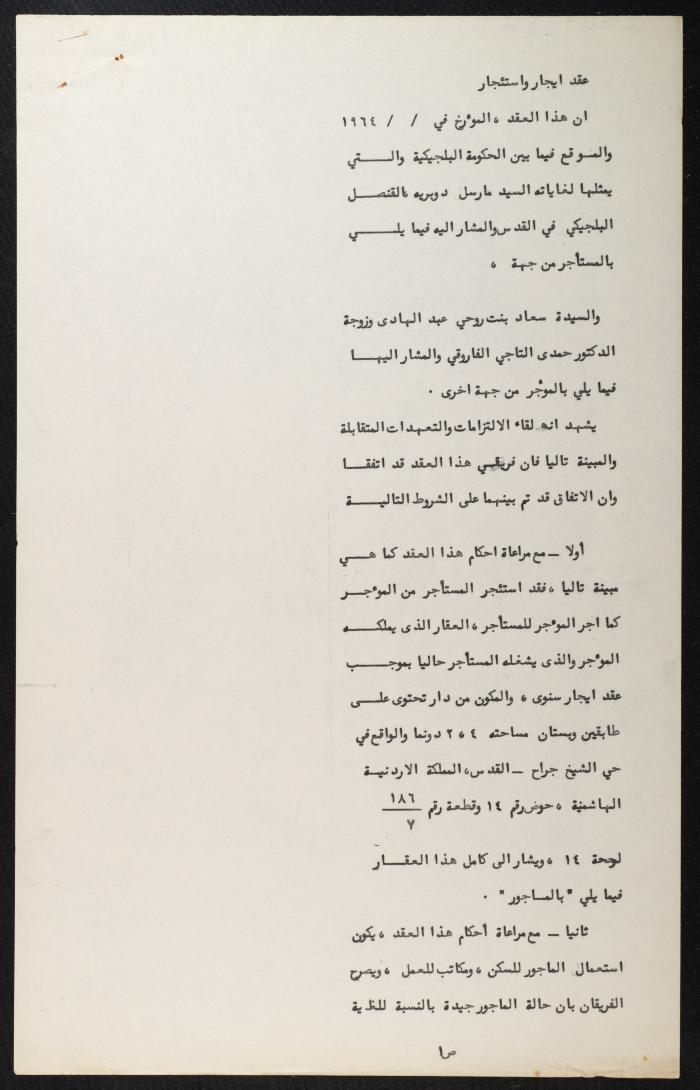 عقد ايجار واستئجار
ان هذا العقد ، المؤرخ في / / ١٩٦٤
والموقع فيما بين الحكومة البلجيكية والتي
يمثلها لغاياته السيد مارسل دوبريه ، القنصل
البلجيكي في القدس والمشار اليه فيما يلي
بالمستأجر من جهة ،
والسيدة سعاد بنت روحي عبد الهادى وزوجة
الدكتور حمدى التاجي الفاروقي والمشار اليها
فيما يلي بالموجر من جهة اخرى ٠
يشهد انه لقاء الالتزامات والتعهدات المتقابلة
والمبينة تاليا فان فريقي هذا العقد قد اتفقا
وان الاتفاق قد تم بينهما على الشروط التالية
أولا – مع مراعاة احكام هذا العقد كما هي
مبينة تاليا ، فقد استئجر المستأجر من المؤجر
كما اجر المؤجر للمستأجر ، العقار الذى يملكه
المؤجر والذى يشغله المستأجر حاليا بموجب
عقد ايجار سنوى ، والمكون من دار تحتوى على
طابقين وبستان مساحته ٤ ، ٢ دونما والواقع في
حي الشيخ جراح – القدس ، المملكة الاردنية
الهاشمية ، حوض رقم ١٤ وقطعة رقم ١٨٦
٧
لوحة ١٤ ، ويشار الى كامل هذا العقار
فيما يلي " بالماجور " ٠
ثانيا – مع مراعاة أحكام هذا العقد ، يكون
استعمال الماجور للسكن ، ومكاتب للعمل ، ويصرح
الفريقان بان حالة الماجور جيدة بالنسبة للغاية
ص١